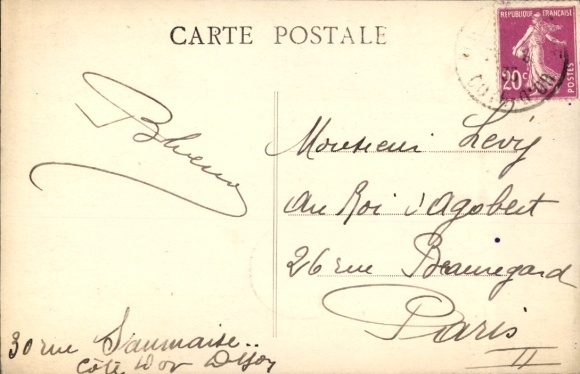 CARTE POSTALE
REPUBLIQUE FRANÇAISE
20c
POSTES
COTE-D'OR
Monsieur Lévy
Au Roi d'Agobert
26 rue Beauregard
Paris
II
30 rue Saumaise..
Côte d'or Dijon